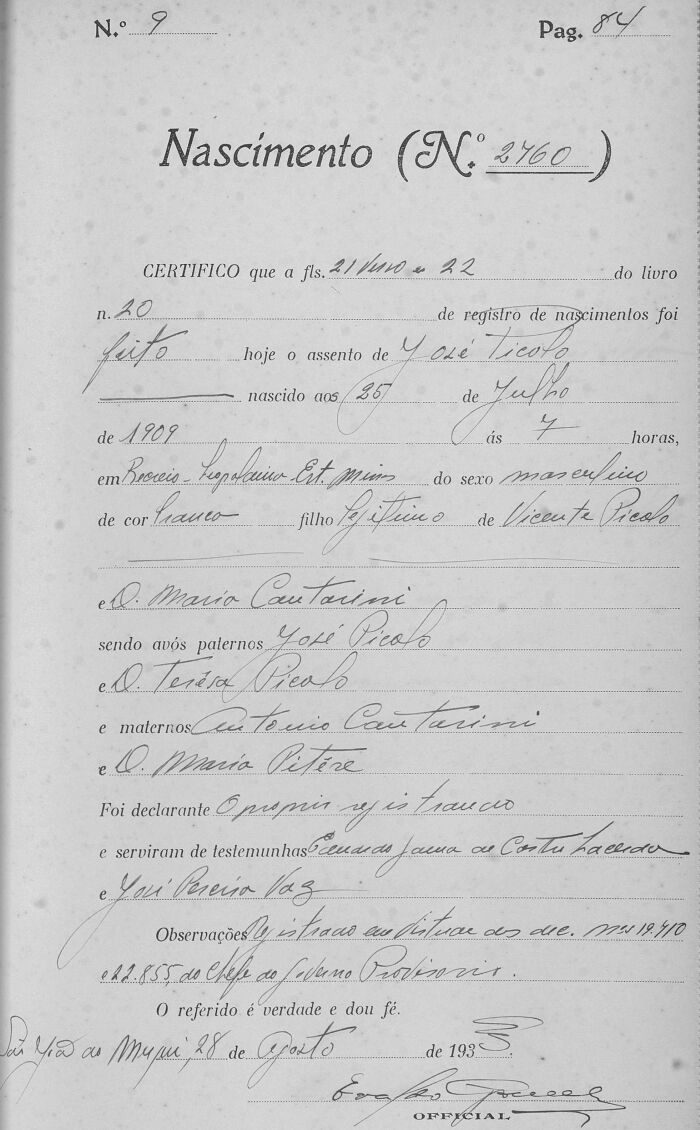 N.º 9 Pag. 84
Nascimento (N.º 2760)
CERTIFICO que a fls. 21 verso e 22 do livro
n. 20 de registro de nascimentos foi
feito hoje o assento de José Picolo
nascido aos 25 de Julho
de 1909 ás 7 horas,
em Recreio - Leopoldina Est. Minas do sexo masculino
de cor branca filho legitimo de Vicente Picolo
e D. Maria Cantarini
sendo avós paternos José Picolo
e D. Terêsa Picolo
e maternos Antonio Cantarini
e D. Maria Pitére
Foi declarante O proprio registrando
e serviram de testemunhas Gama da Costa Lacerda
e José Pereira Vaz
Observações Registrado em virtude dos dec. nos 19.710
e 22.855, do Chefe do Governo Provisorio.
O referido é verdade e dou fé.
do Muqui, 28 de Agosto de 1933.
OFFICIAL